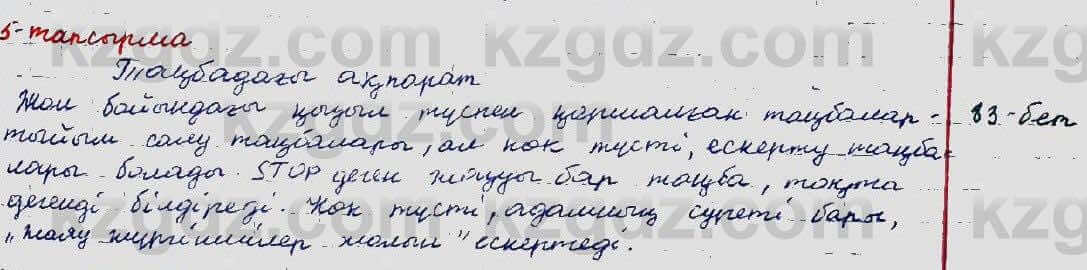 5-тапсырма
Таңбадағы ақпарат
Жол бойындағы қызыл түспен қоршалған таңбалар - 83-бет
тыйым салу таңбалары, ал көк түсті, ескерту таңба-
лары болады. STOP деген жазуы бар таңба, тоқта
дегенді білдіреді. Көк түсті, адамның суреті бары,
"жаяу жүргіншілер жолын" ескертеді.
kzgdz.com kzgdz.com